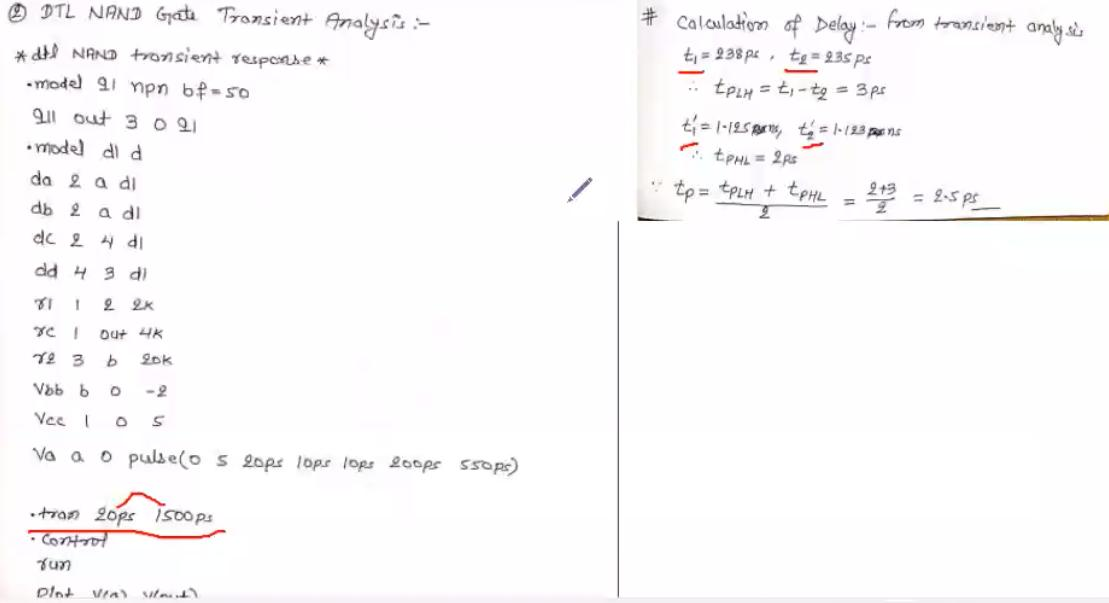 ② DTL NAND Gate Transient Analysis :-
* dtl NAND transient response *
.model q1 npn bf=50
q11 out 3 0 q1
.model d1 d
da 2 a d1
db 2 a d1
dc 2 4 d1
dd 4 3 d1
r1 1 2 2k
rc 1 out 4k
r2 3 b 20k
Vbb b 0 -2
Vcc 1 0 5
Va a 0 pulse(0 5 20ps 10ps 10ps 200ps 550ps)
.tran 20ps 1500ps
.control
run
Plot V(a) V(out)
# Calculation of Delay :- from transient analysis
t₁ = 238ps, t₂ = 235ps
∴ tPLH = t₁ - t₂ = 3ps
t₁' = 1.125 ns, t₂' = 1.123 ns
∴ tPHL = 2ps
∵ tp = (tPLH + tPHL)/2 = (2+3)/2 = 2.5 ps